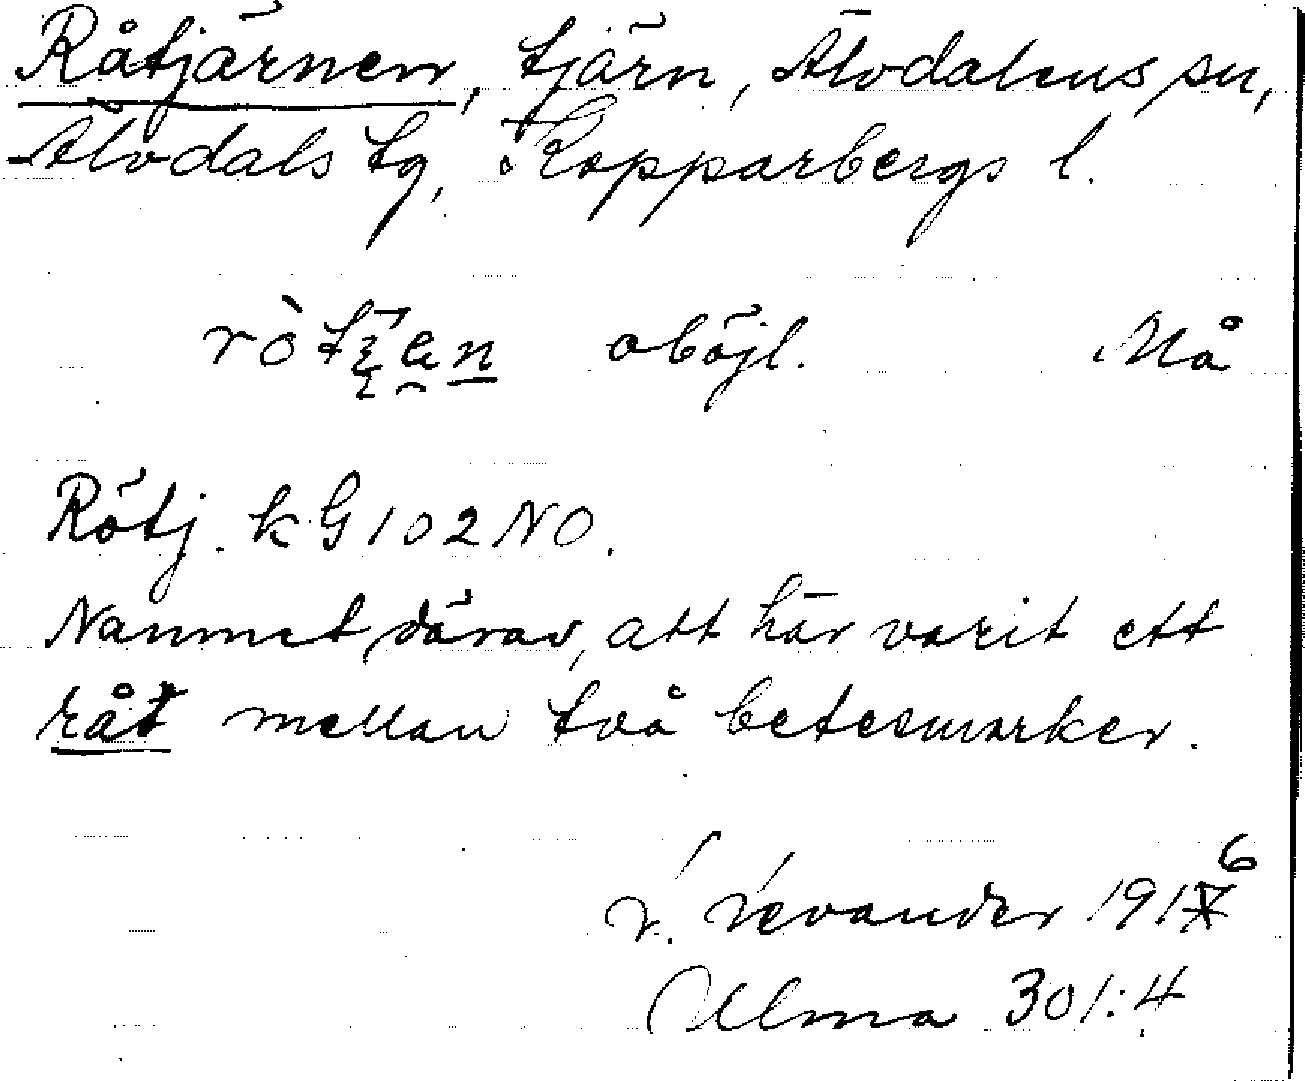 Råtjärnen, tjärn, Älvdalens sn,
Älvdals tg, Kopparbergs l.
oböjl. Må
Rötj. kG102NO.
Namnet därav, att här varit ett
råt mellan två betesmarker.
L. Levander 1916
Ulma 301:4